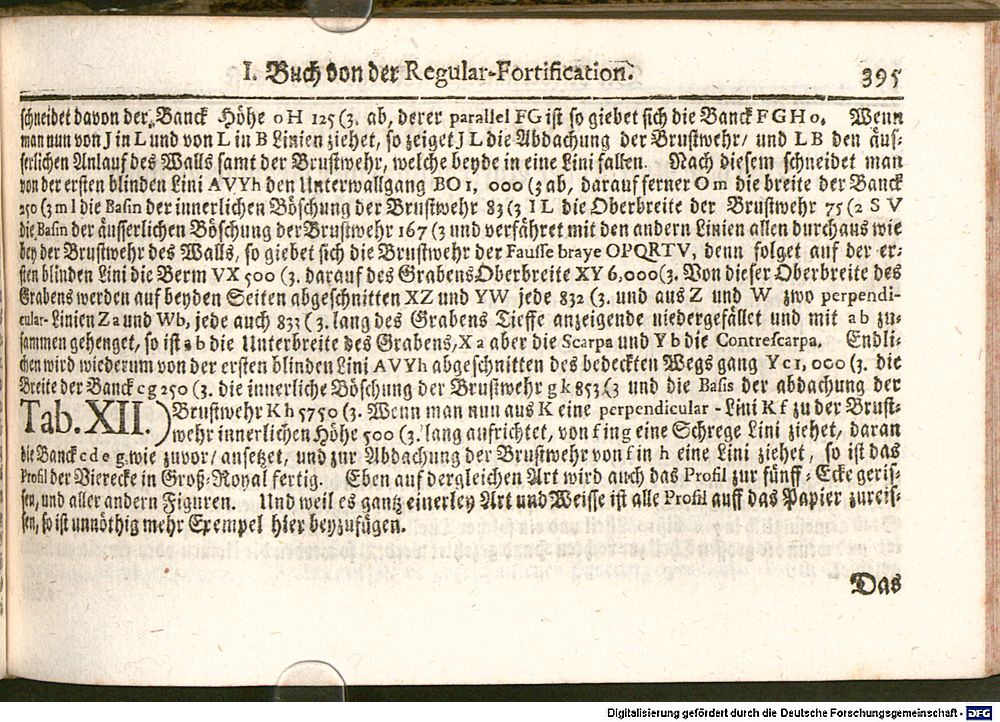 I. Buch von der Regular-Fortification. 395
schneidet davon der Banck Höhe o H 125 (3. ab, derer parallel FG ist so giebet sich die Banck F G H o. Wenn
man nun von J in L und von L in B Linien ziehet, so zeiget J L die Abdachung der Brustwehr/ und L B den äus-
serlichen Anlauf des Walls samt der Brustwehr, welche beyde in eine Lini fallen. Nach diesem schneidet man
von der ersten blinden Lini AVYh den Unterwallgang BO 1, 000 (3 ab, darauf ferner O m die breite der Banck
250 (3 m l die Basin der innerlichen Böschung der Brustwehr 83 (3 I L die Oberbreite der Brustwehr 75 (2 S V
die Basin der äusserlichen Böschung der Brustwehr 167 (3 und verfähret mit den andern Linien allen durchaus wie
bey der Brustwehr des Walls, so giebet sich die Brustwehr der Fausse braye OPQRTV, denn folget auf der er-
sten blinden Lini die Berm VX 500 (3. darauf des Grabens Oberbreite XY 6,000 (3. Von dieser Oberbreite des
Grabens werden auf beyden Seiten abgeschnitten XZ und YW jede 832 (3. und aus Z und W zwo perpendi-
cular-Linien Z a und Wb, jede auch 833 (3. lang des Grabens Tieffe anzeigende niedergefället und mit a b zu-
sammen gehenget, so ist a b die Unterbreite des Grabens, X a aber die Scarpa und Y b die Contrescarpa. Endli-
chen wird wiederum von der ersten blinden Lini AVYh abgeschnitten des bedeckten Wegs gang Y c 1, 000 (3. die
Breite der Banck c g 250 (3. die innerliche Böschung der Brustwehr g k 853 (3 und die Basis der abdachung der
Tab. XII. ) Brustwehr K h 5750 (3. Wenn man nun aus K eine perpendicular-Lini K f zu der Brust-
wehr innerlichen Höhe 500 (3. lang aufrichtet, von f in g eine Schrege Lini ziehet, daran
die Banck c d e g, wie zuvor/ ansetzet, und zur Abdachung der Brustwehr von f in h eine Lini ziehet, so ist das
Profil der Vierecke in Groß-Royal fertig. Eben auf dergleichen Art wird auch das Profil zur fünff-Ecke geris-
sen, und aller andern Figuren. Und weil es gantz einerley Art und Weisse ist alle Profil auff das Papier zureis-
sen, so ist unnöthig mehr Exempel hier beyzufügen.
Das
Digitalisierung gefördert durch die Deutsche Forschungsgemeinschaft - DFG